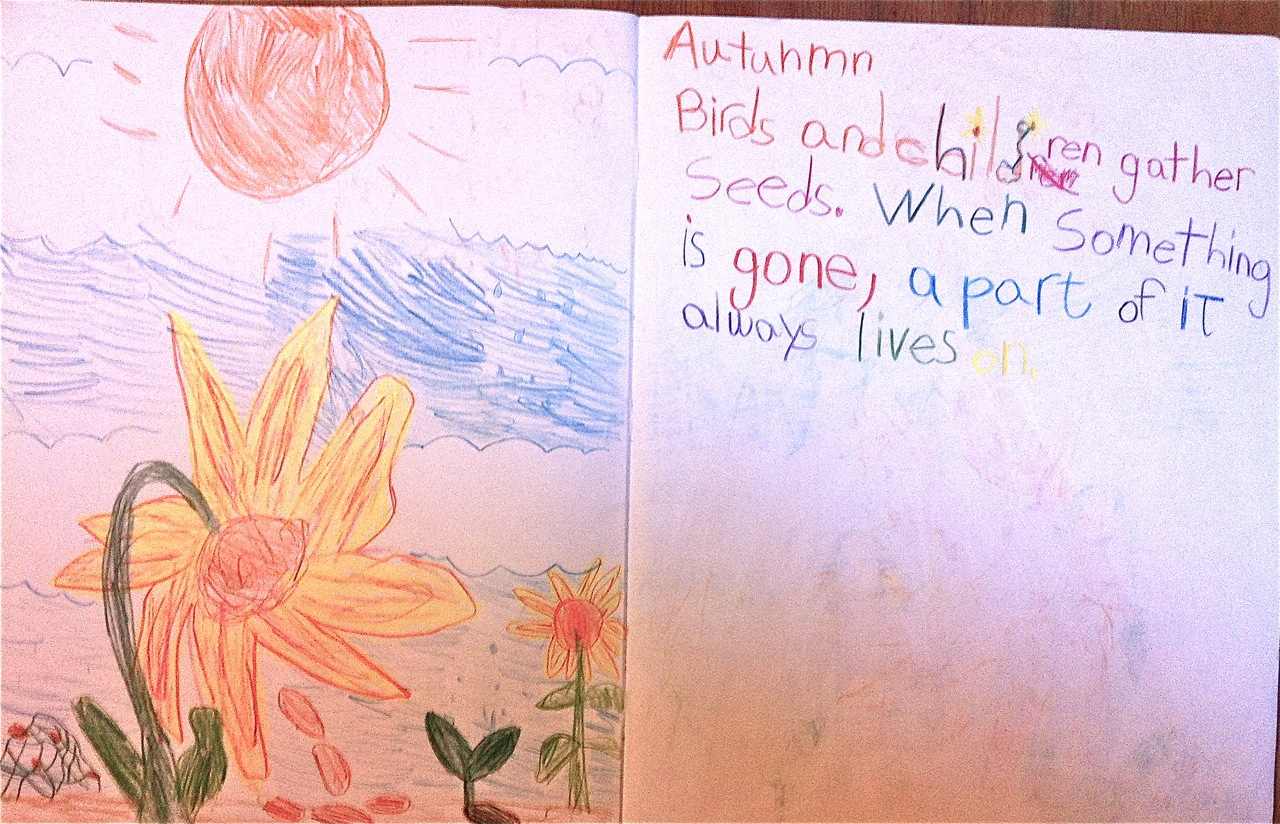 Autunmn
Birds and children gather
Seeds. When Something
is gone, a part of it
always lives on.